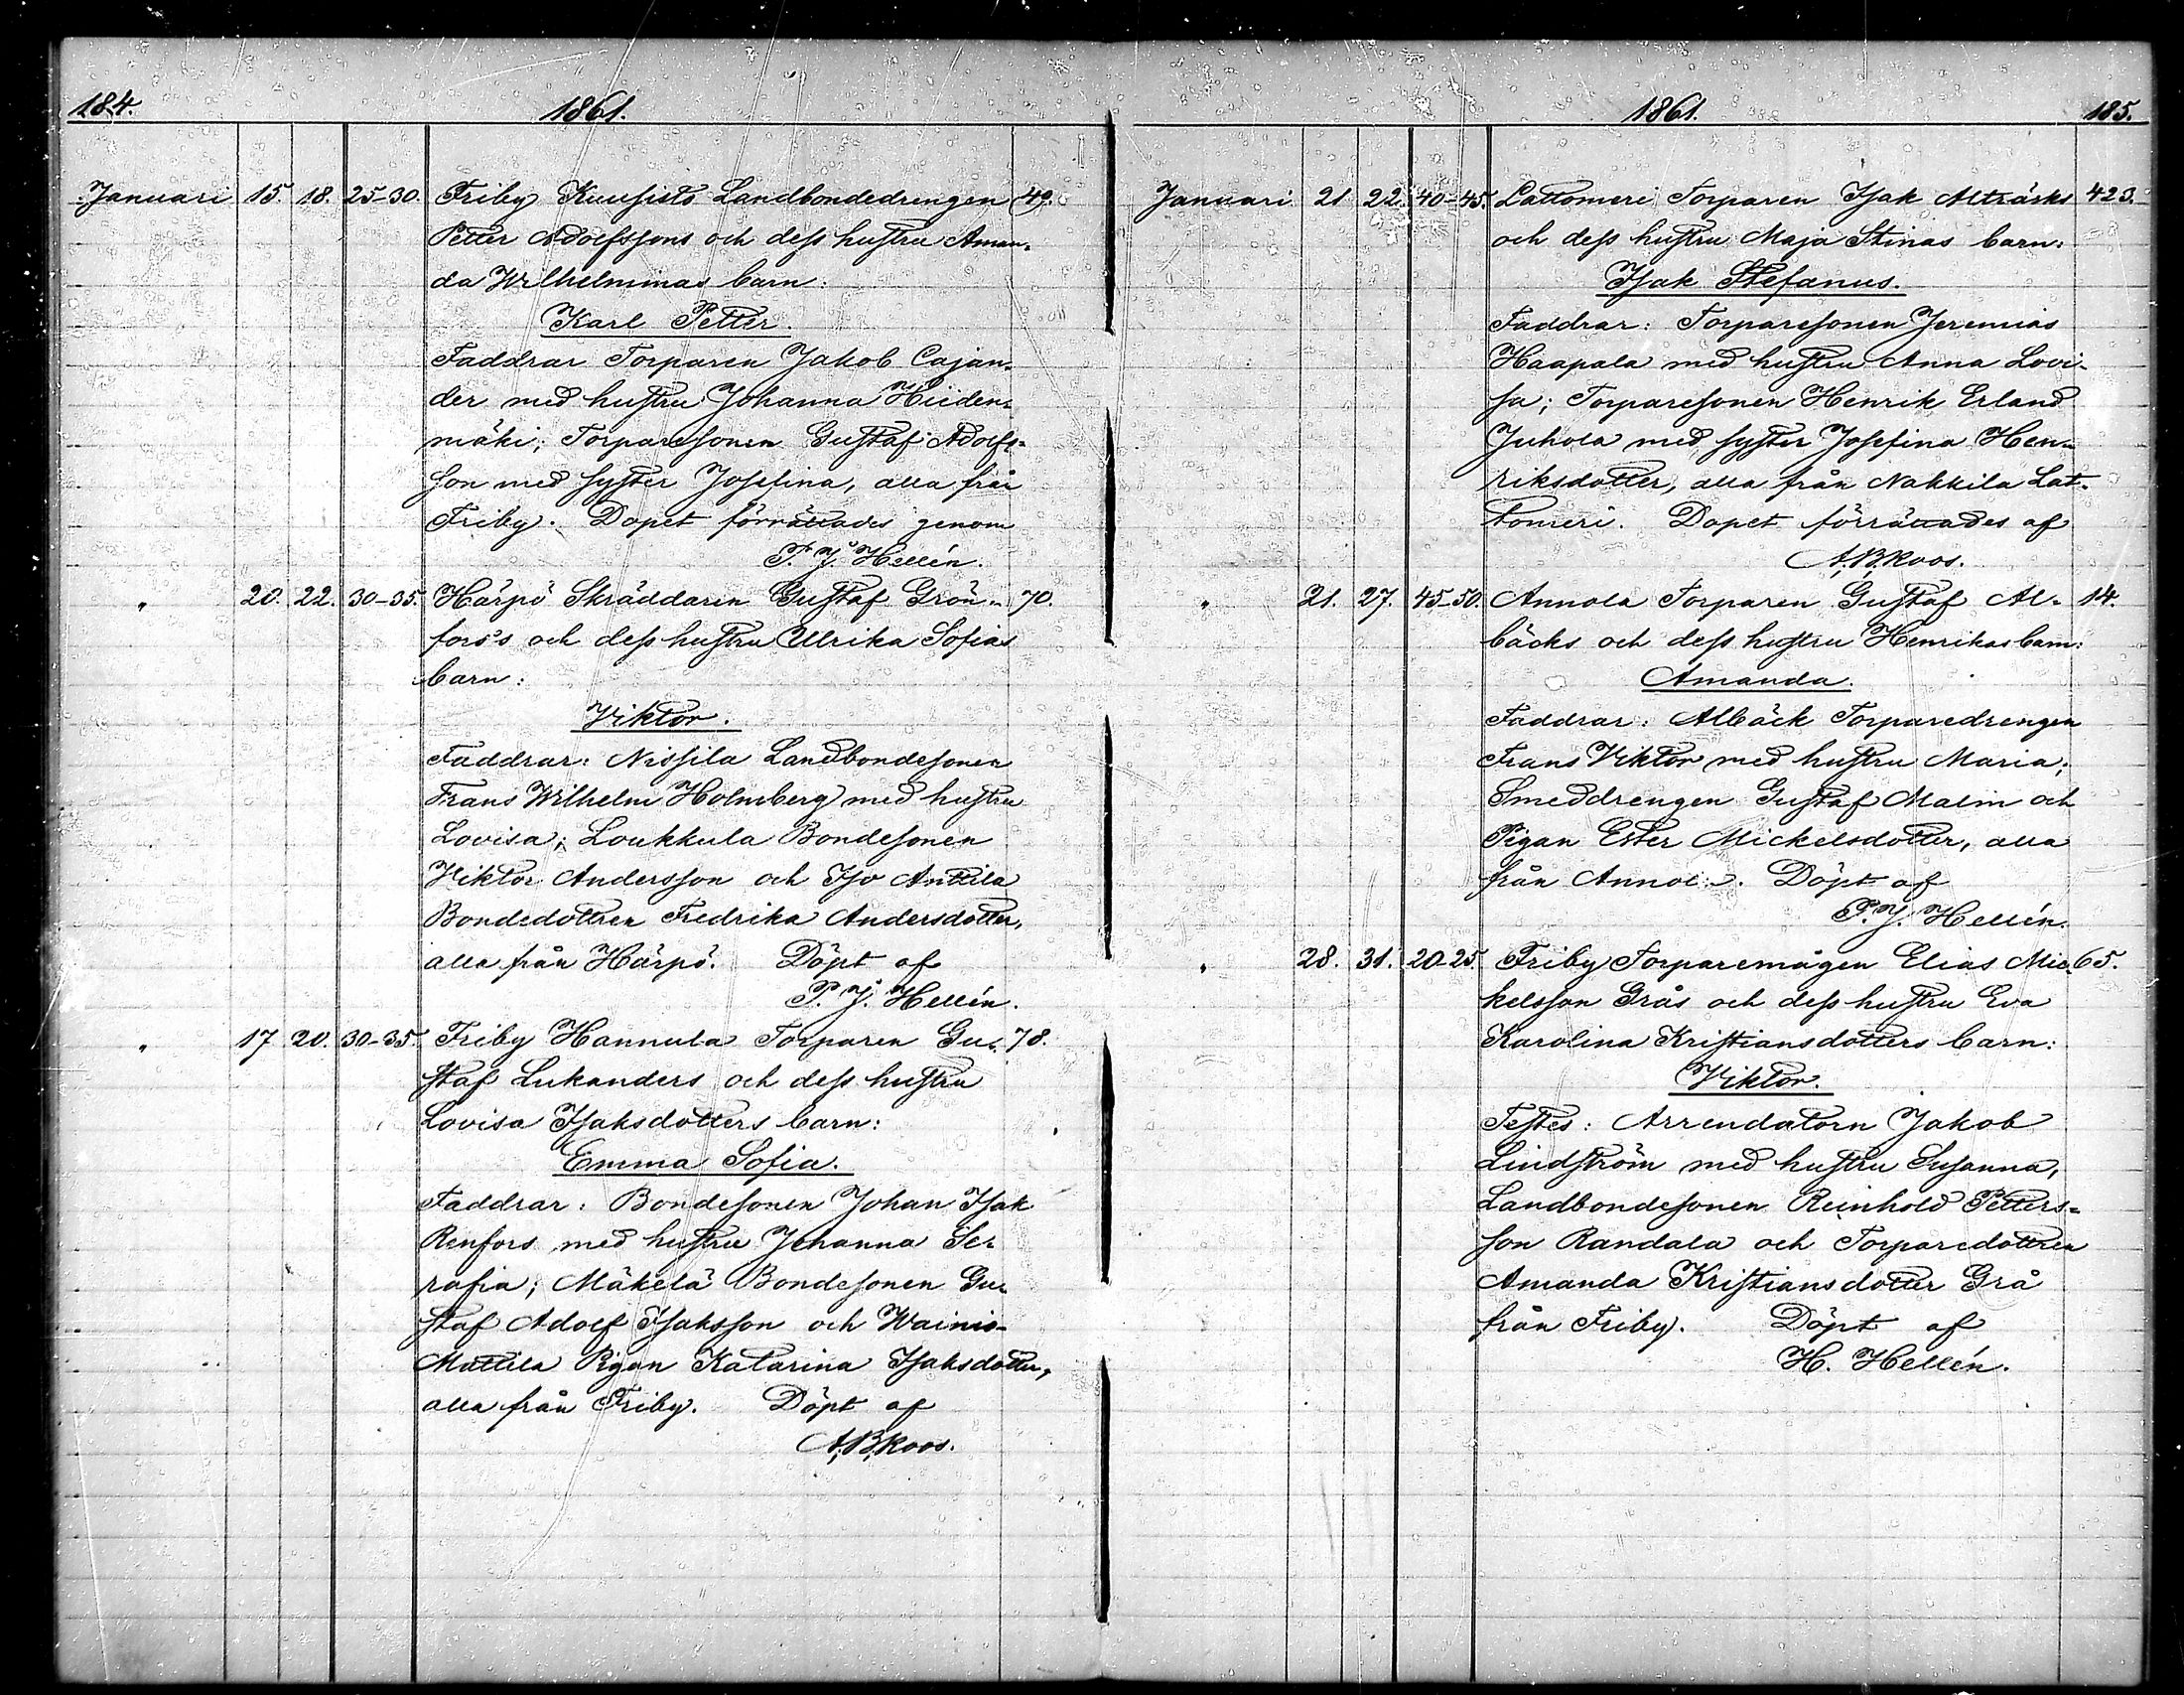 184. 1861.
Januari 15. 18. 25-30. Friby Kuusisto Landbondedrengen 49.
Petter Adolfssons och dess hustru Aman-
da Wilhelminas barn:
Karl Petter.
Faddrar Torparen Jakob Cajan-
der med hustru Johanna Hiiden-
mäki; Torparesonen Gustaf Adolfs-
son med syster Josefina, alla från
Friby. Dopet förrättades genom
P. J. Hellén.
" 20. 22. 30-35. Härpö Skräddaren Gustaf Grön- 70.
fors's och dess hustru Ulrika Sofias
barn:
Viktor.
Faddrar: Nissila Landbondesonen
Frans Wilhelm Holmberg med hustru
Lovisa; Loukkula Bondesonen
Viktor Andersson och Iso Anttila
Bondedottren Fredrika Andersdotter,
alla från Härpö. Döpt af
P. J. Hellén.
" 17 20. 30-35. Friby Hannula Torparen Gu- 78.
staf Lukanders och dess hustru
Lovisa Isaksdotters barn:
Emma Sofia.
Faddrar: Bondesonen Johan Isak
Renfors med hustru Johanna Se-
rafia; Mäkelä Bondesonen Gu-
staf Adolf Isaksson och Wainio-
Mattila Pigan Katarina Isaksdotter,
alla från Friby. Döpt af
A. B. Roos.
1861. 185.
Januari 21 22. 40-45. Lattomeri Torparen Isak Alträsks 423.
och dess hustru Maja Stinas barn:
Isak Stefanus.
Faddrar: Torparesonen Jeremias
Haapala med hustru Anna Lovi-
sa; Torparesonen Henrik Erland
Juhola med syster Josefina Hen-
riksdotter, alla från Nakkila Lat-
tomeri. Dopet förrättades af
A. B. Roos.
" 21. 27. 45-50. Annola Torparen Gustaf Al- 14.
bäcks och dess hustru Henrikas barn:
Amanda.
Faddrar: Albäck Torparedrengen
Frans Viktor med hustru Maria;
Smeddrengen Gustaf Malm och
Pigan Ester Mickelsdotter, alla
från Annola. Döpt af
P. J. Hellén.
" 28. 31. 20-25. Friby Torparemågen Elias Mic- 65.
kelsson Grås och dess hustru Eva
Karolina Kristiansdotters barn:
Viktor.
Testes: Arrendatorn Jakob
Lindström med hustru Susanna,
Landbondesonen Reinhold Petters-
son Randala och Torparedottren
Amanda Kristiansdotter Grå
från Friby. Döpt af
H. Hellén.